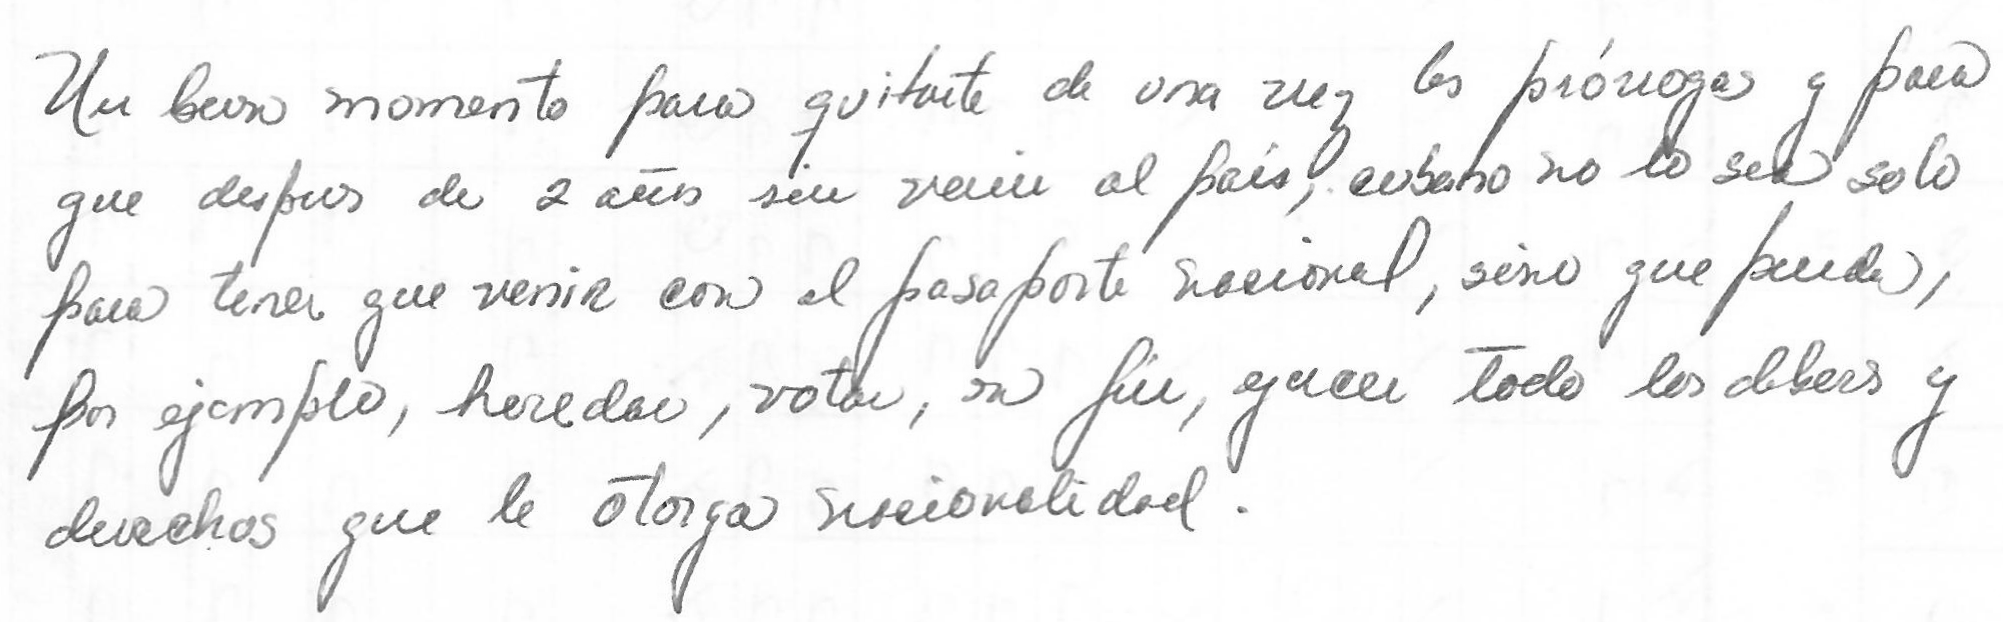 Un buen momento para quitarte de una vez las prórrogas y para
que despues de 2 años sin venir al país, cubano no lo sea solo
para tener que venir con el pasaporte nacional, sino que pueda,
por ejemplo, heredar, votar, en fin, ejercer todo los deberes y
derechos que le otorga nacionalidad.